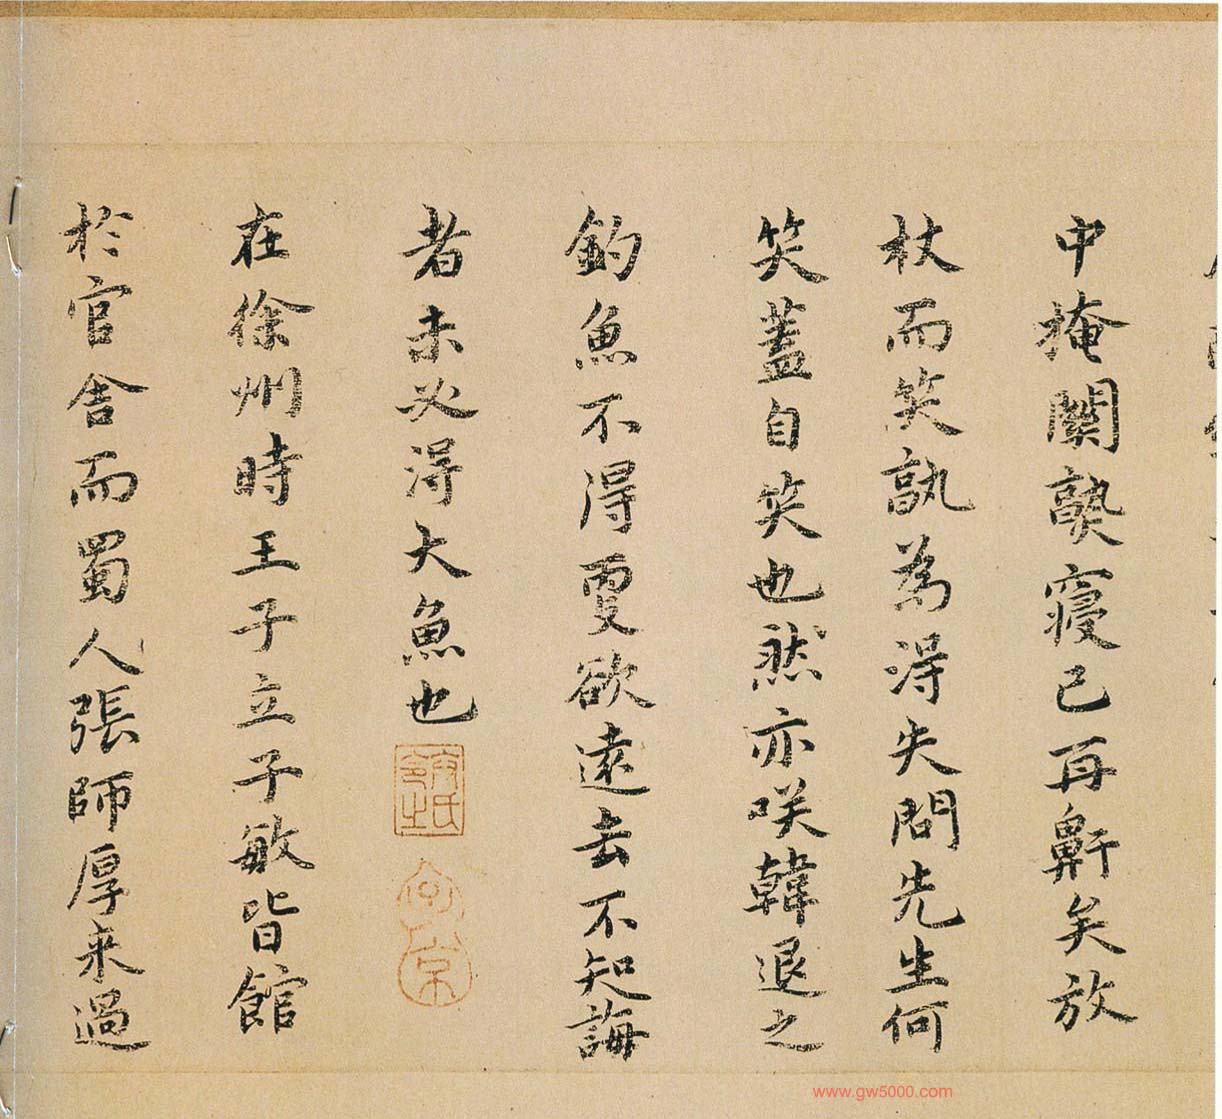 中掩關熟寢已再鼾矣放
杖而笑孰為得失問先生何
笑蓋自笑也然亦咲韓退之
釣魚不得更欲遠去不知誨
者未必得大魚也
在徐州時王子立子敏皆館
於官舍而蜀人張師厚来過
www.gw5000.com